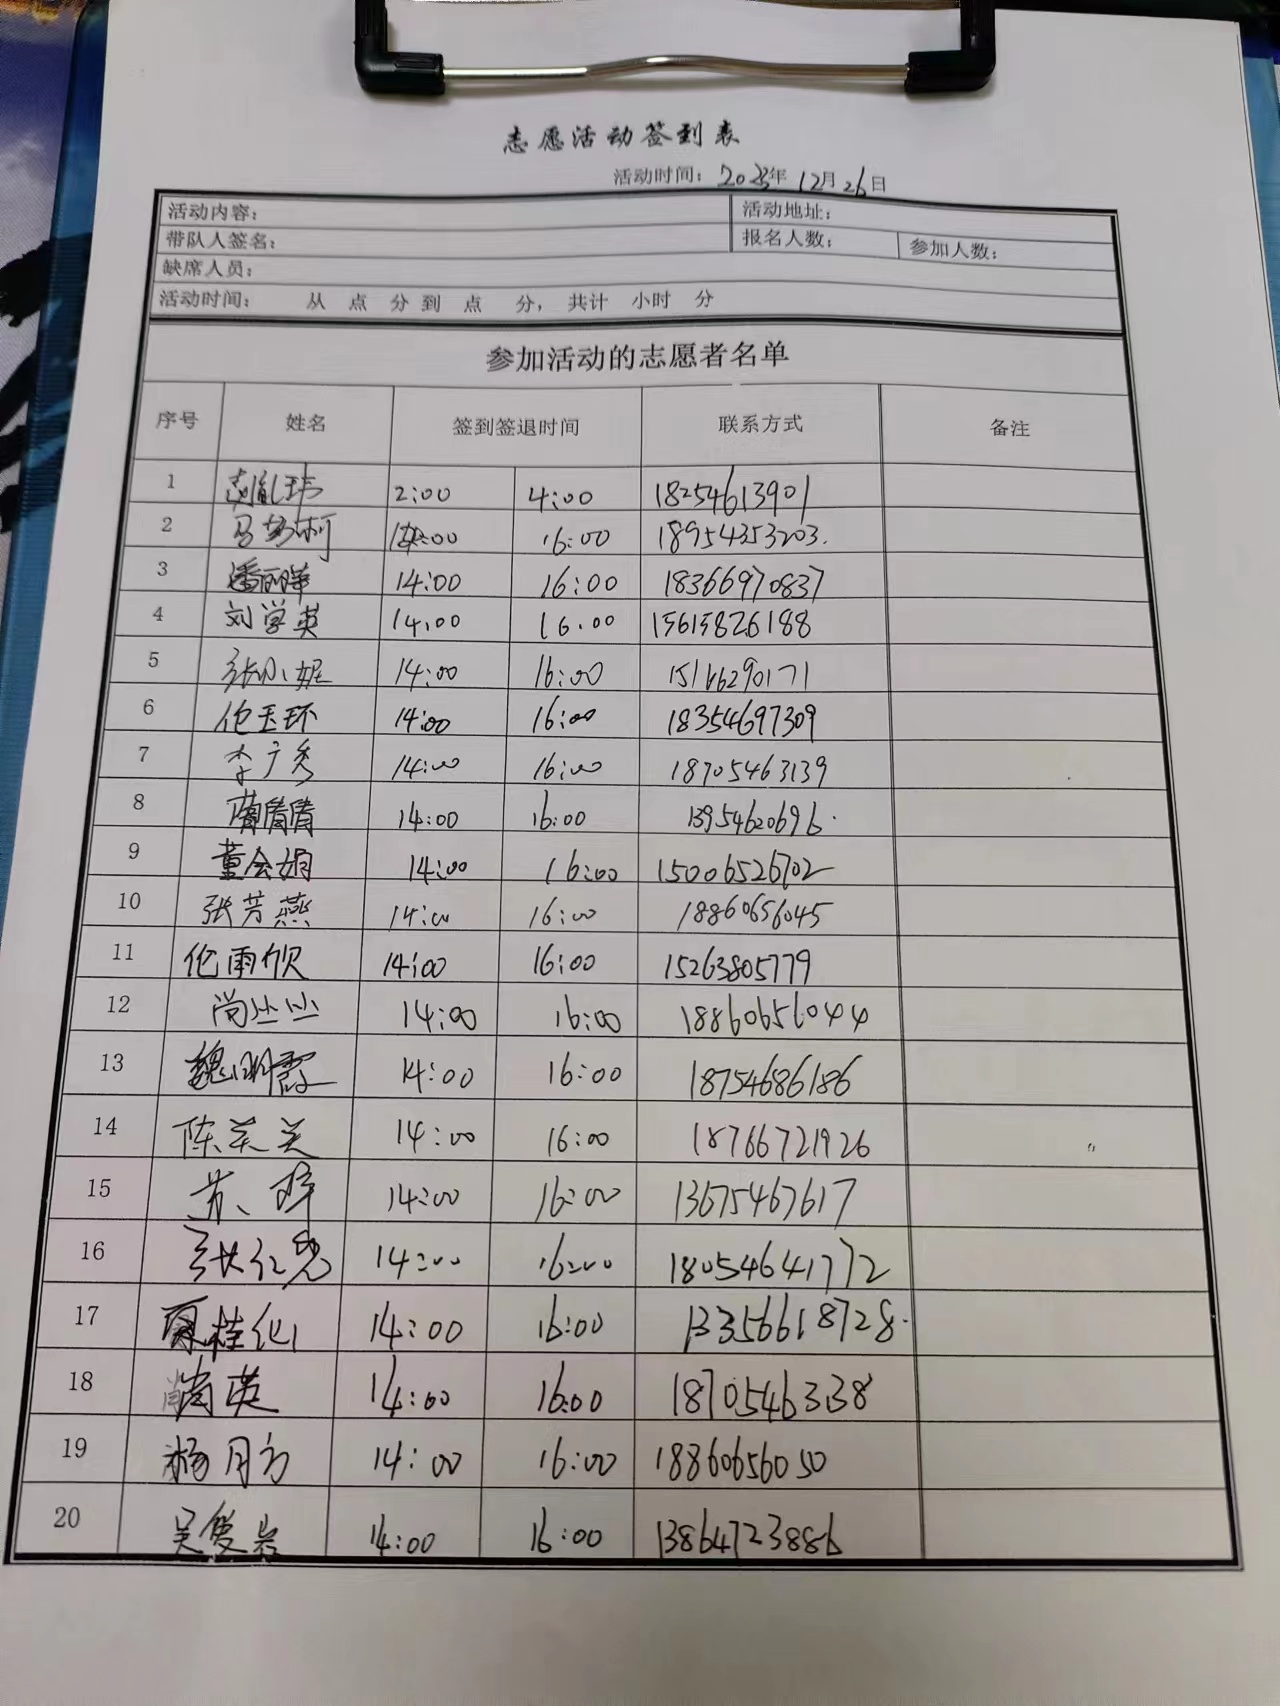 志愿活动签到表
活动时间：2023年12月26日
活动内容： 活动地址：
带队人签名： 报名人数： 参加人数：
缺席人员：
活动时间： 从 点 分到 点 分，共计 小时 分
参加活动的志愿者名单
序号 姓名 签到签退时间 联系方式 备注
1 2:00 4:00 18254613901
2 14:00 16:00 18954353203.
3 潘丽萍 14:00 16:00 18366970837
4 刘学英 14:00 16:00 15615826188
5 张小妮 14:00 16:00 15166290171
6 伦玉环 14:00 16:00 18354697309
7 李广秀 14:00 16:00 18705463139
8 14:00 16:00 13954620696.
9 董会娟 14:00 16:00 15006526702
10 张芳燕 14:00 16:00 18860656045
11 伦雨欣 14:00 16:00 15263805779
12 尚丛丛 14:00 16:00 18860656044
13 魏明霞 14:00 16:00 18754686186
14 陈英美 14:00 16:00 18766721926
15 14:00 16:00 13675467617
16 张红亮 14:00 16:00 18054641772
17 桂仙 14:00 16:00 13356618728.
18 英 14:00 16:00
19 杨月方 14:00 16:00 18860656050
20 吴爱岩 14:00 16:00 13864723886